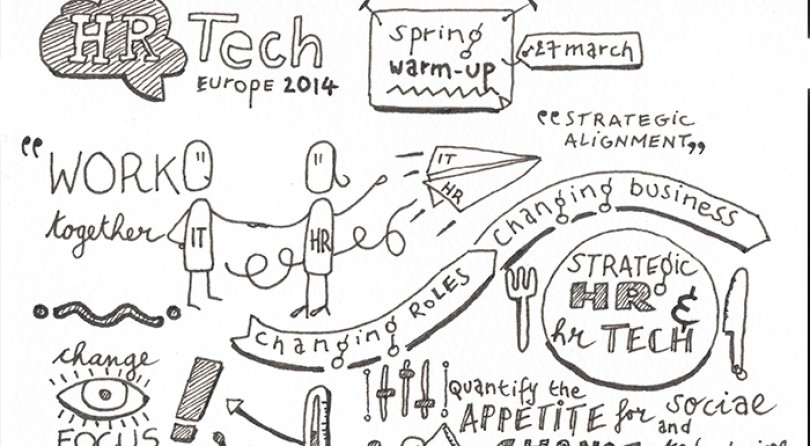 HR Tech
Europe 2014
spring
warm-up
27 march
"STRATEGIC
ALIGNMENT"
"WORK
together
IT
HR
IT
HR
changing ROLES
changing business
STRATEGIC
HR &
hr TECH
change
FOCUS
Quantify the
APPETITE for social
and